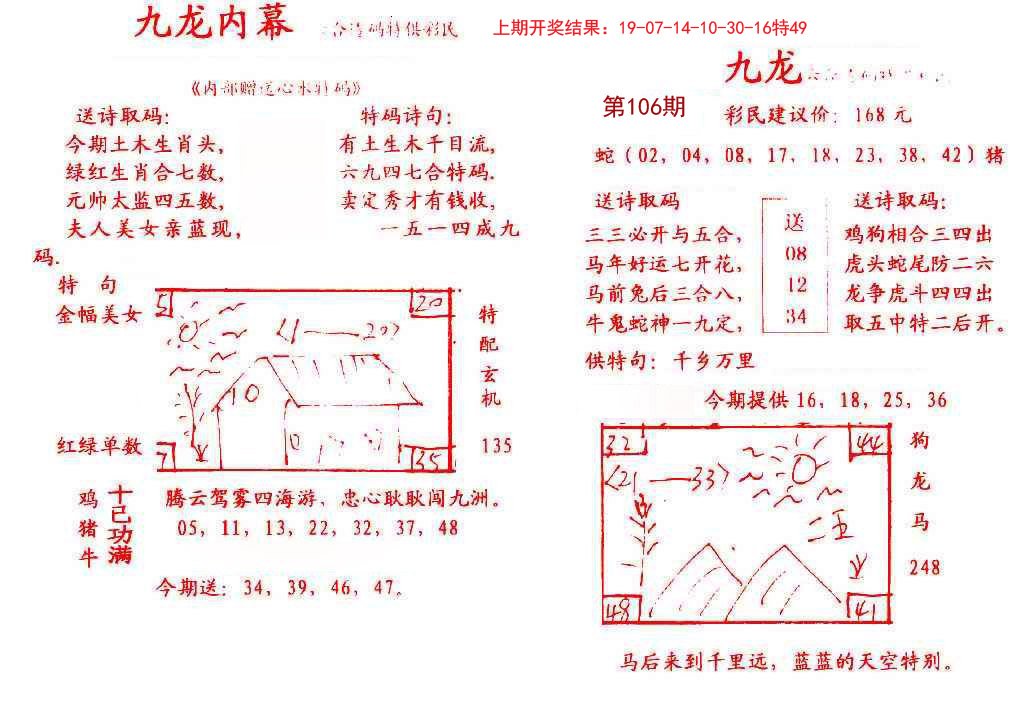 九龙内幕
六合透码特供彩民
上期开奖结果：19-07-14-10-30-16特49
《内部赠送心水特码》
送诗取码：
今期土木生肖头，
绿红生肖合七数，
元帅太监四五数，
夫人美女亲蓝现，
特码诗句：
有土生木千目流，
六九四七合特码．
卖定秀才有钱收，
一五一四成九
码．
特 句
金幅美女
红绿单数
5
20
〈1——20〉
10
7
35
特
配
玄
机
135
鸡
猪
牛
十已功满
腾云驾雾四海游、忠心耿耿闯九洲。
05，11，13，22，32，37，48
今期送：34，39，46，47。
九龙
第106期
彩民建议价：168元
蛇（02，04，08，17，18，23，38，42）猪
送诗取码
三三必开与五合，
马年好运七开花，
马前兔后三合八，
牛鬼蛇神一九定，
送
08
12
34
送诗取码：
鸡狗相合三四出
虎头蛇尾防二六
龙争虎斗四四出
取五中特二后开。
供特句：千乡万里
今期提供16，18，25，36
32
44
〈21——33〉
二王
48
41
狗
龙
马
248
马后来到千里远，蓝蓝的天空特别。